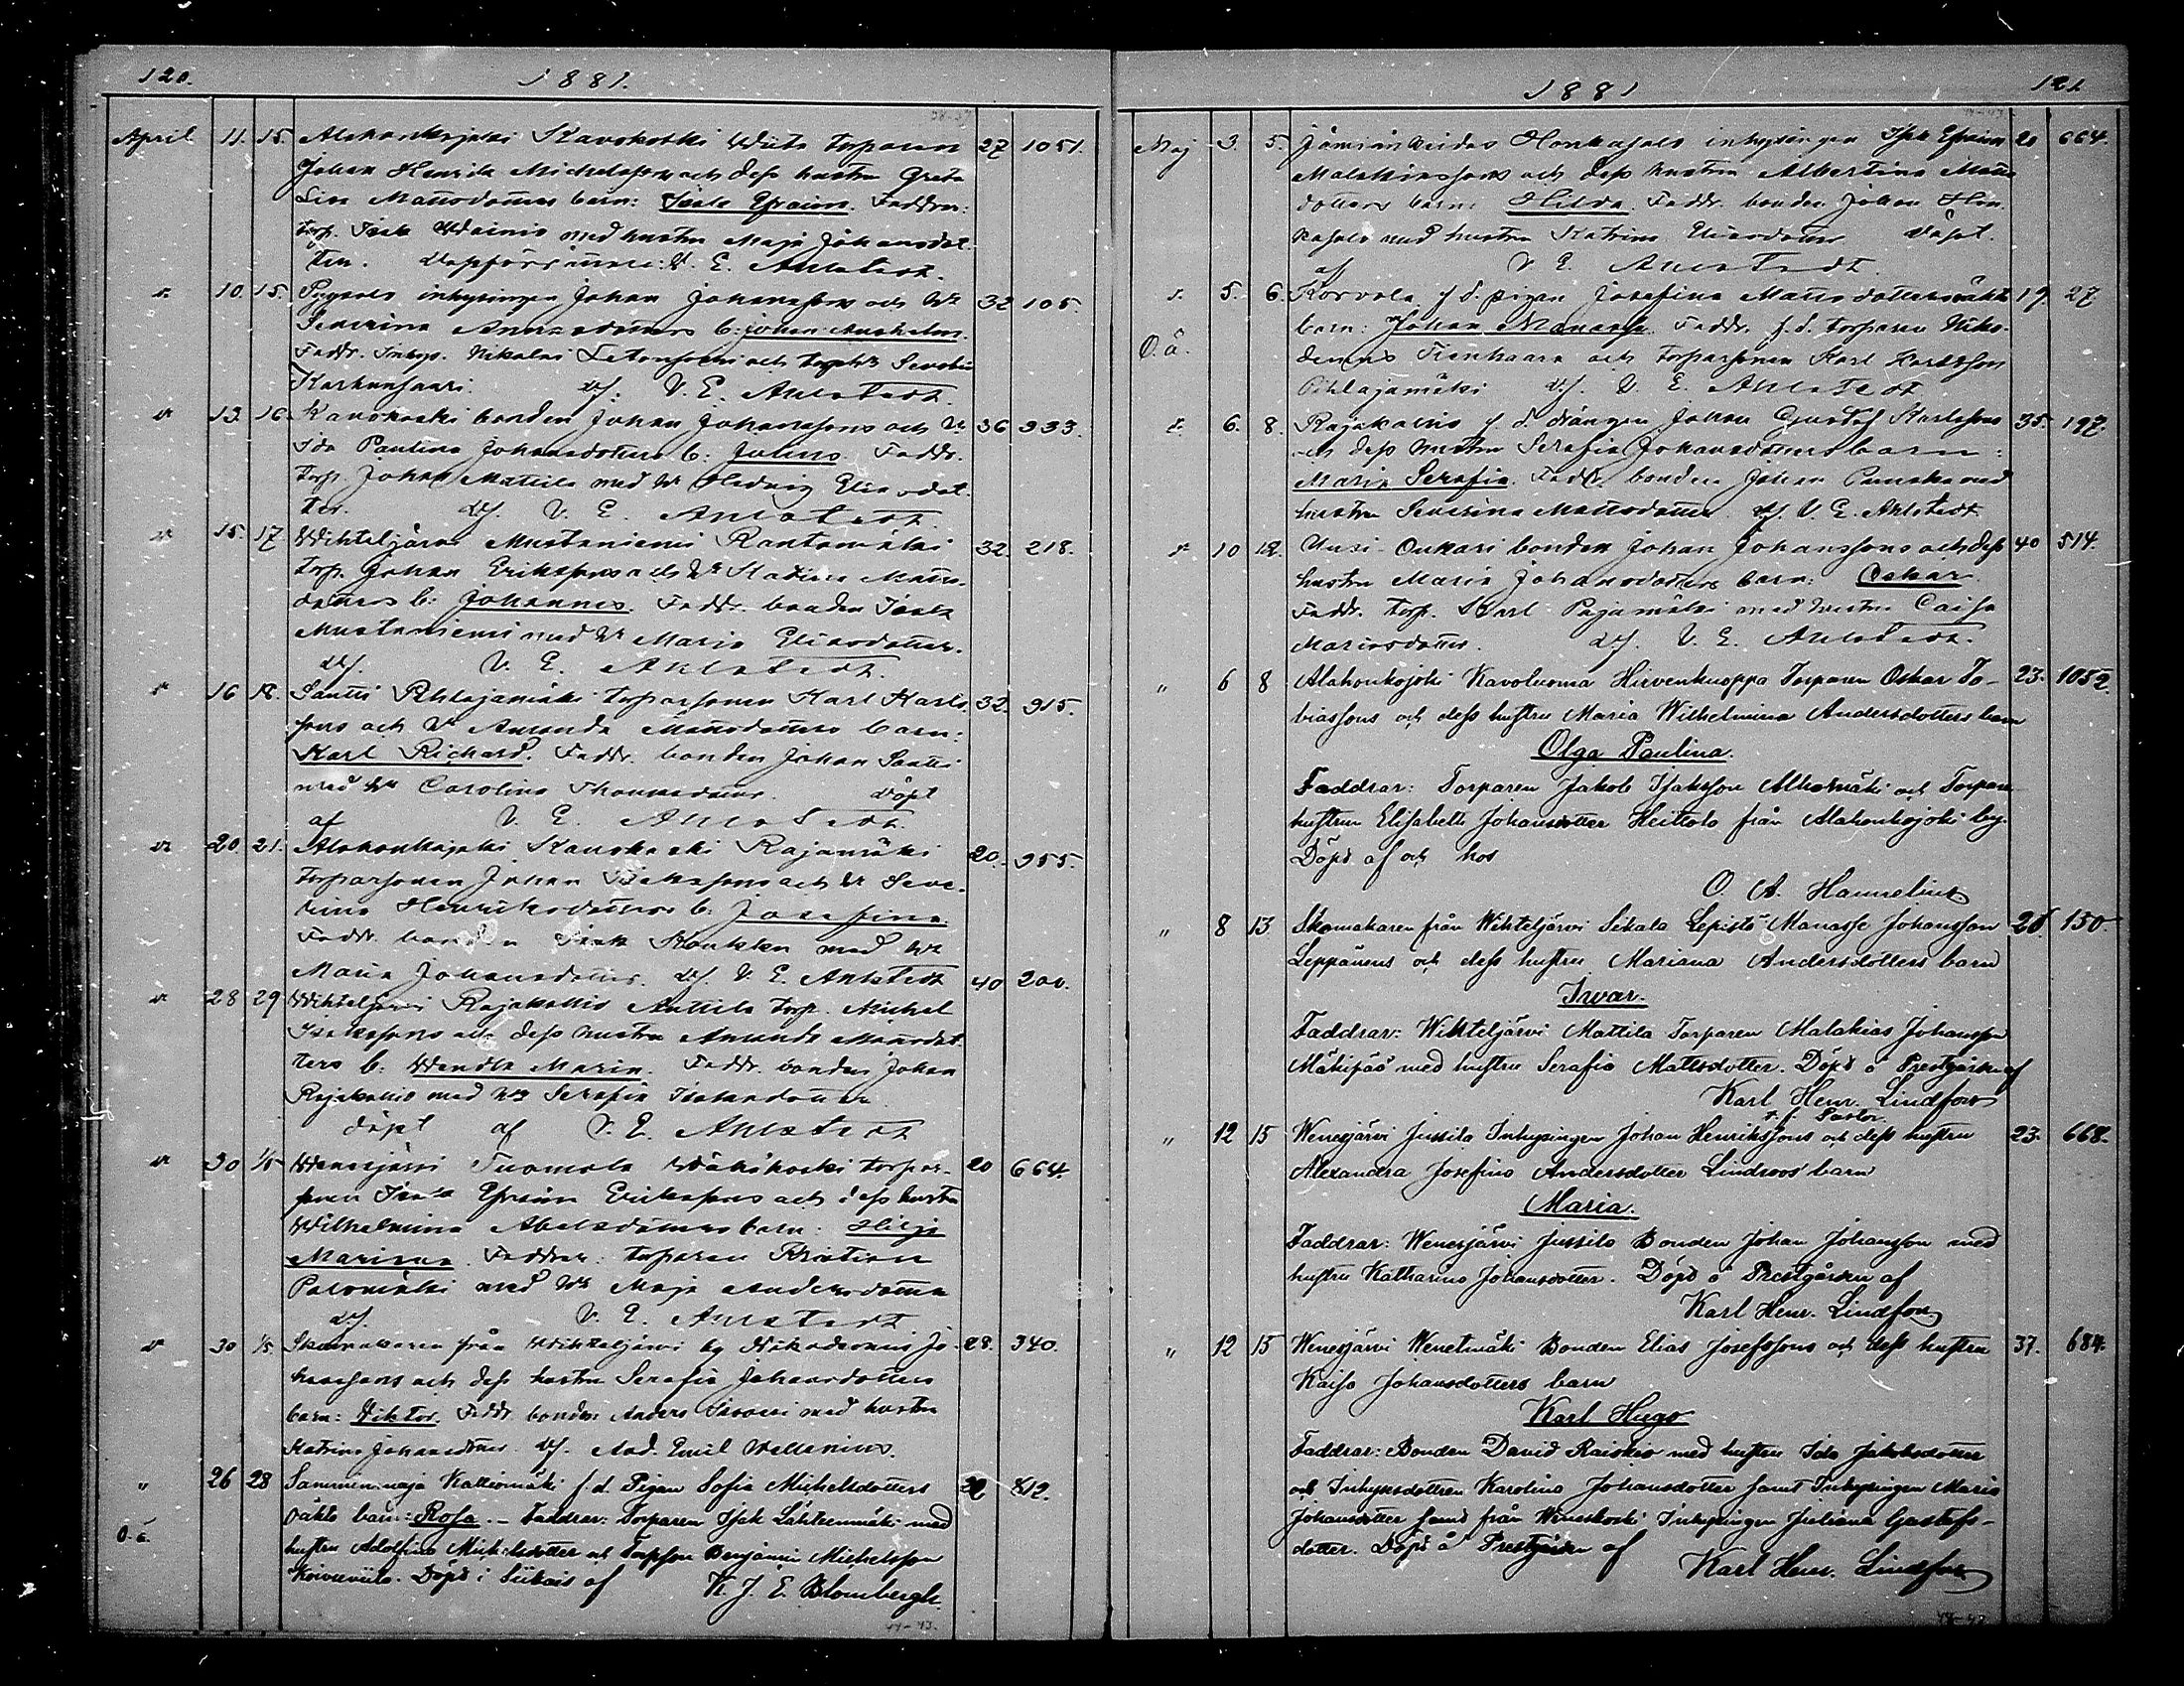 120. 1881.
April 11. 15. Alahonkajoki Kavokoski torparen 27 1051.
Johan Henrik Michelssons och dess hustru Greta
Lisa Mattsdotters barn: Isak Efraim. Faddrar:
torp. Isak med hustru Maja Johansdot-
ter. Döpförrättare: V. E. Ahlstedt.
10. 15. inhysingen Johan Johanssons och h. 32 105.
Severina Andersdotters b: Johan Anshelm.
Faddr. Inhys. Nikolai och
Karhunsaari. df. V. E. Ahlstedt.
13. 16. Kavokoski bonden Johan Johanssons och h. 36 933.
Ida Paulina Johansdotters b: Julius. Faddr.
torp. Johan Mattila med h. Hedvig Eliasdot-
ter. df. V. E. Ahlstedt.
15. 17. Wihteljärvi Mustaniemi Rantamäki 32. 218.
torp. Johan Erikssons och h. Matts-
dotters b: Johannes. Faddr. bonden Isak
Mustaniemi med h. Maria Eliasdotter.
df. V. E. Ahlstedt.
16 18. Santti Pihlajamäki torparsonen Karl Karls- 32. 915.
sons och h. Amanda Mattsdotters barn:
Karl Richard. Faddr. bonden Johan Santti
med h. Carolina Thomasdotter. döpt
af V. E. Ahlstedt.
20. 21. Alahonkajoki Kavokoski Rajamäki 20. 955.
torparsonen Johan Isakssons och h. Seve-
rina Henriksdotters b: Josefina.
Faddr. bonden Isak med h.
Maria Johansdotter. df. V. E. Ahlstedt
28 29 Wihteljärvi Rajakallio Anttila torp. Michel 40 200.
Isakssons och dess hustru Amanda Mattsdot-
ters b: Wendla Maria. Faddr. bonden Johan
Rajakallio med h. Serafia Isaksdotter
döpt af V. E. Ahlstedt
30 1/5 Wenesjärvi Tuomola Wähäkoski torpar- 20 664.
sonen Isak Efraim Erikssons och dess hustru
Wilhelmina Abelsdotters barn: Hilja
Mariana. Faddrar: torparen Kristian
Palomäki med h. Maja Andersdotter
df. V. E. Ahlstedt.
30 1/5. Skomakaren från Wihteljärvi by Nikodemus Jo- 28. 340.
hanssons och dess hustru Serafia Johansdotters
barn: Viktor. Faddr. bonden Anders med hustru
Katrina Johansdotter. df. And. Emil Wellenius.
" 26 28 Sammi maja Kattiomäki f.d. Pigan Sofia Michelsdotters 22 812.
O.ä. oäkta barn: Rosa. – Faddrar: Torparen Isak Lähteenmäki med
hustru Adolfina Michelsdotter och Torpson Benjamin Michelsson
Koivuviita. Döpd i Siikais af K. J. E. Blombergh.
44-43.
1881 121
Maj 3. 5. Jämiänkeidas Honkasalo inhysingen Isak Efraim 20 664.
Malakiassons och dess hustru Albertina Matts-
dotters barn: Hilda. Faddr. bonden Johan Hon-
kasalo med hustru Katrina Eliasdotter döpt.
af V. E. Ahlstedt.
5. 6. Korvola f.d. pigan Josefina Mattsdotters oäkta 19. 27
O.ä. barn: Johan Manasse. Faddr. f.d. torparen Niko-
demus Tienhaara och torparsonen Karl Karlsson
Pihlajamäki df. V. E. Ahlstedt
6. 8. Rajakallio f.d. drängen Johan Gustaf Karlssons 35. 197.
och dess hustru Serafia Johansdotters barn:
Maria Serafia. Faddr. bonden Johan med
hustru Severina Mattsdotter. df. V. E. Ahlstedt
10 12. Uusi-Oukari bonden Johan Johanssons och dess 40 514.
hustru Maria Johansdotters barn: Oskar.
Faddr. torp. Karl Pajamäki med hustru Caisa
Mariasdotter. df. V. E. Ahlstedt.
" 6 8 Alahonkojoki Kavoluoma Hirvenkuoppa Torparen Oskar To- 23. 1052.
biassons och dess hustru Maria Wilhelmina Andersdotters barn
Olga Paulina.
Faddrar: Torparen Jakob Isaksson Alhomäki och Torpare-
hustrun Elisabeth Johansdotter Heittola från Alahonkojoki by.
Döpt af och hos
O. A. Hannelius
" 8 13 Skomakaren från Wihteljärvi Sikala Lepistö Manasse Johansson 26. 150
Leppänens och dess hustru Mariana Andersdotters barn
Iwar.
Faddrar: Wihteljärvi Mattila Torparen Malakias Johansson
Mäkipää med hustru Serafia Mattsdotter. Döpt å Prestgården af
Karl Henr. Lindfors
t. f. Pastor.
" 12 15 Wenesjärvi Jussila Inhysingen Johan Henrikssons och dess hustru 23. 668.
Alexandra Josefina Andersdotter Lindroos' barn
Maria.
Faddrar: Wenesjärvi Jussila Bonden Johan Johansson med
hustru Katharina Johansdotter. Döpt å Prestgården af
Karl Henr. Lindfors
" 12 15 Wenesjärvi Wenetmäki Bonden Elias Josefssons och dess hustru 37. 684.
Kaisa Johansdotters barn
Karl Hugo
Faddrar: Bonden David Raiskio med hustru Ida Jakobsdotter
och Inhysesdottren Karolina Johansdotter samt Inhysingen Maria
Johansdotter samt från Weneskoski Inhysingen Juliana Gustafs-
dotter. Döpt å Prestgården af Karl Henr. Lindfors